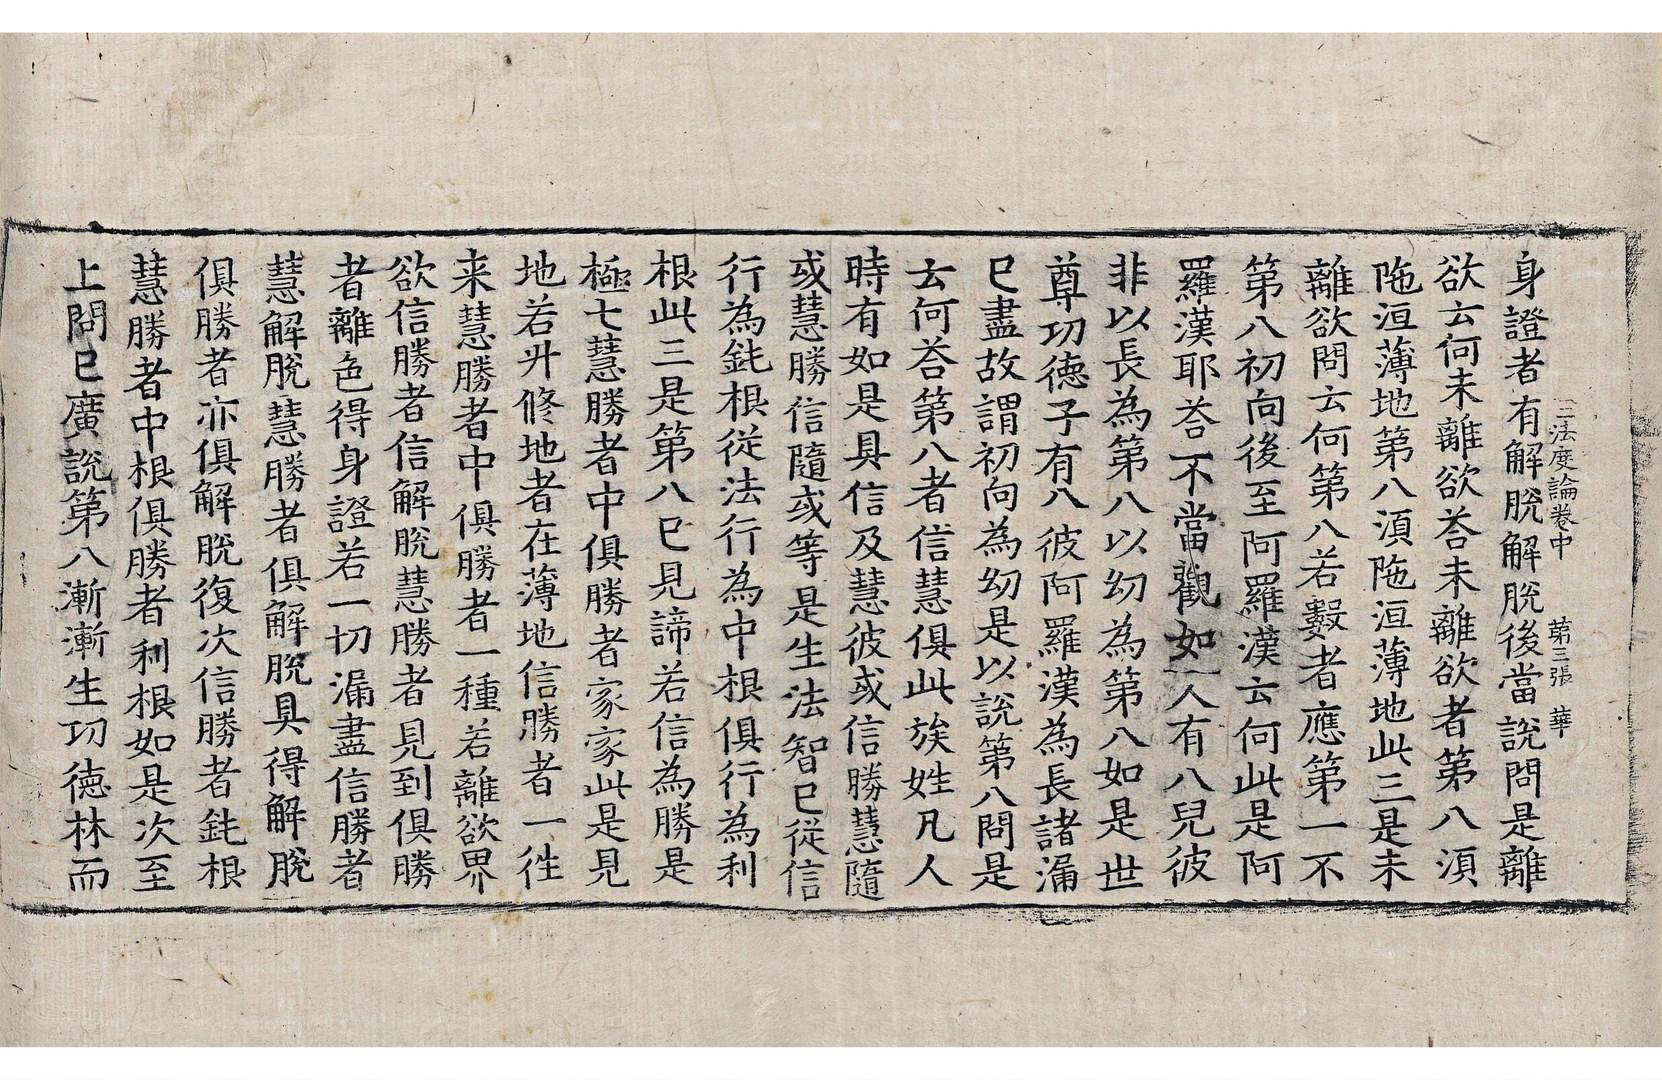 身證者有解脫解脫後當說問是離
三法度論卷中 第三張 華
欲云何未離欲荅未離欲者第八湏
陁洹薄地第八湏陁洹薄地此三是未
離欲問云何第八若數者應第一不
第八初向後至阿羅漢云何此是阿
羅漢耶荅不當觀如一人有八兒彼
非以長為第八以㓜為第八如是世
尊功德子有八彼阿羅漢為長諸漏
已盡故謂初向為㓜是以說第八問是
云何荅第八者信慧俱此族姓凡人
時有如是具信及慧彼或信勝慧隨
或慧勝信隨或等是生法智已從信
行為鈍根從法行為中根俱行為利
根此三是第八已見諦若信為勝是
極七慧勝者中俱勝者家家此是見
地若升修地者在薄地信勝者一徃
来慧勝者中俱勝者一種若離欲界
欲信勝者信解脫慧勝者見到俱勝
者離色得身證若一切漏盡信勝者
慧解脫慧勝者俱解脫具得解脫
俱勝者亦俱解脫復次信勝者鈍根
慧勝者中根俱勝者利根如是次至
上問已廣說第八漸漸生功德林而